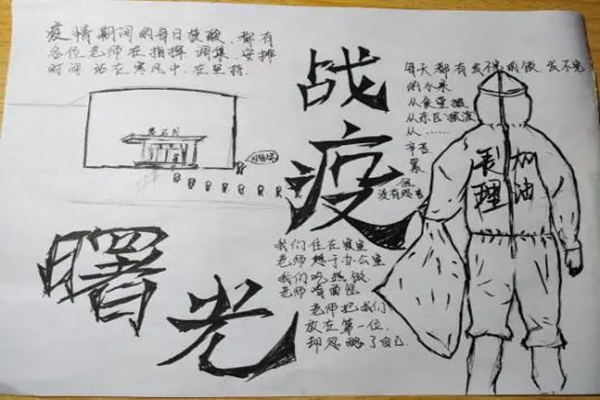 疫情期间的每日核酸、都有
各位老师在指挥、调集、安排
时间、站在寒风中、在坚持.
战疫
每天都有发不完的饭、发不完
的水果
从食堂搬
从东区搬
从……
辛苦
累
但
没有怨言
晨理
加油
我们住在寝室
老师憩于办公室
我们吃热饭
老师啃面包
老师把我们
放在第一位
却忽略了自己.
曙光